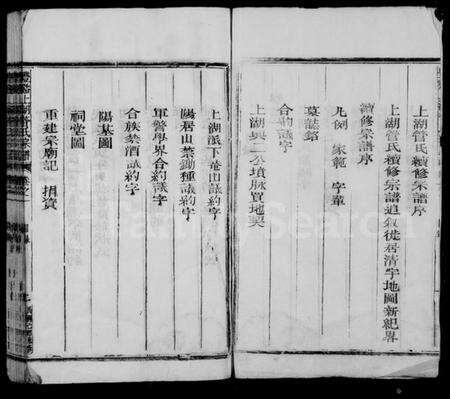 上湖管氏續修宗譜序
上湖管氏續修宗譜追叙徙居清宇地圖新紀畧
續修宗譜序
凡例 家範 字輩
墓誌銘
合約議字
上湖與二公墳脉買地契
上湖派下竜山議約字
陽居山禁鋤種議約字
軍警學界合約議字
合族禁酒議約字
陽基圖
祠堂圖
重建宗廟記 捐資